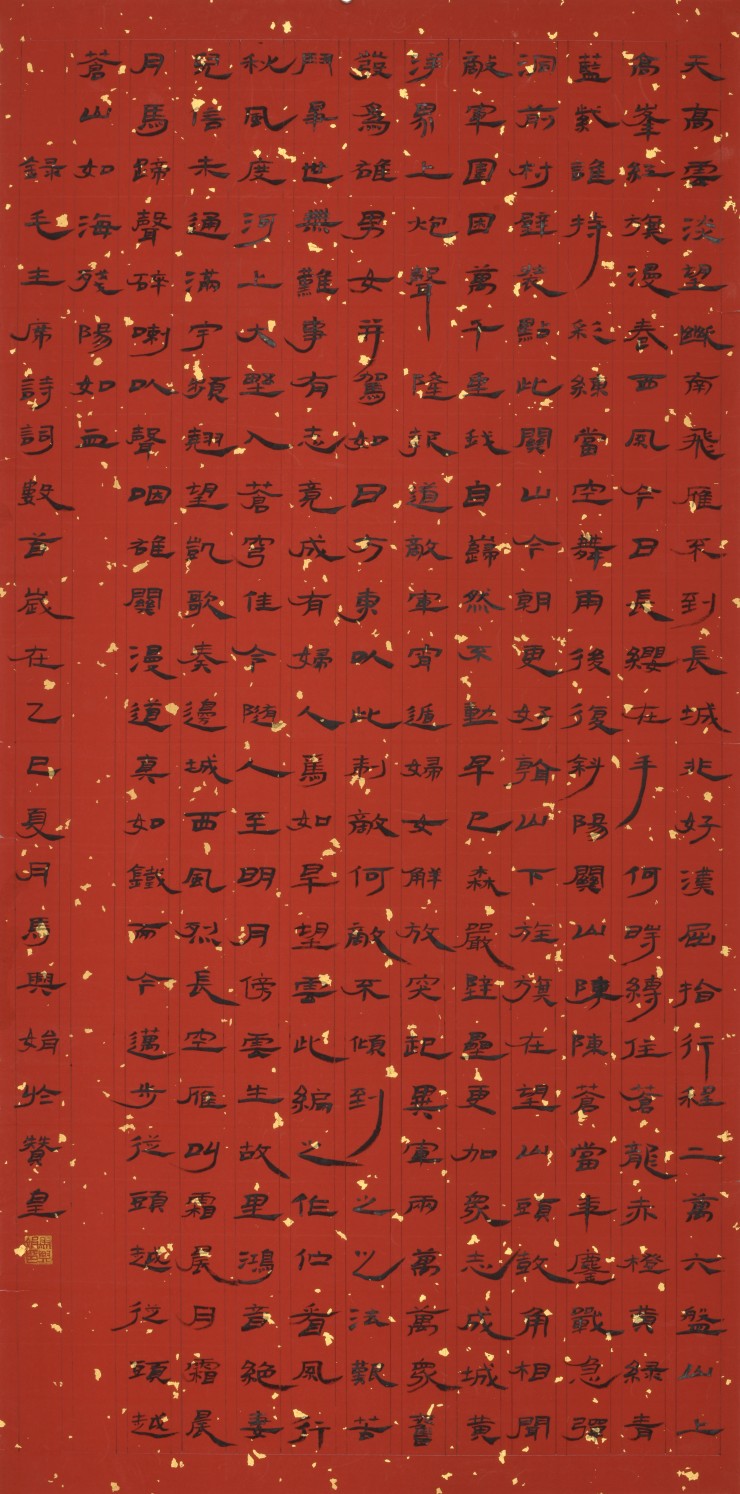 天高雲淡望斷南飛雁不到長城非好漢屈指行程二萬六盤山上
高峯紅旗漫卷西風今日長纓在手何時縛住蒼龍赤橙黃綠青
藍紫誰持彩練當空舞雨後復斜陽關山陣陣蒼當年鏖戰急彈
洞前村壁裝點此關山今朝更好看山下旌旗在望山頭鼓角相聞
敵軍圍困萬千重我自巋然不動早已森嚴壁壘更加眾志成城黃
洋界上炮聲隆報道敵軍宵遁婦女解放突起異軍兩萬萬眾奮
發為雄男女并駕如日方東以此制敵何敵不傾到之之法艱苦
鬥畢世無難事有志竟成有婦人焉如旱望雲此編之作佇看風行
秋風度河上大野入蒼穹佳令隨人至明月傍雲生故里鴻音絕妻
兒信未通滿宇頻翹望凱歌奏邊城西風烈長空雁叫霜晨月霜晨
月馬蹄聲碎喇叭聲咽雄關漫道真如鐵而今邁步從頭越從頭越
蒼山如海殘陽如血
錄毛主席詩詞數首歲在乙巳夏月馬興娟於贊皇